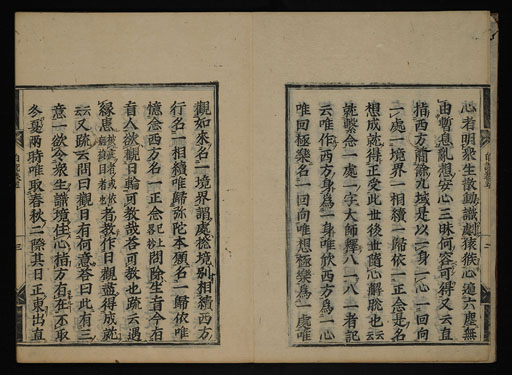 心者明衆生散動識處猿猴心遍六塵無
由暫息亂想安心三昧何容可得又云直
指西方簡餘九域是以一身一心一回向
一處一境界一相續一歸依一正念是名
想成就得正受此世後世隨心解脫也云云
就繫念一處一字大師釋八一八一者記
云唯作西方身爲一身唯欣西方爲一心
唯回極樂名一回向唯想極樂爲一處唯
觀如來名一境界謂處總境別相續西方
行名一相續唯歸弥陀本願名一歸依唯
憶念西方名一正念 問除生盲者今有
盲人欲觀日輪可教哉答可教也疏云遇
緣患 者教作日觀蓋得成就
云云又疏云問曰觀日有何意答曰此有三
意一欲令衆生識境住心指方有在不取
冬夏兩時唯取春秋二際其日正東出直
三